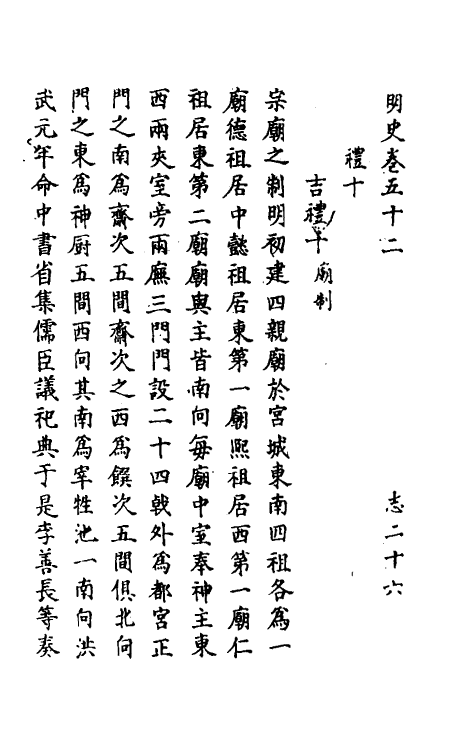 明史卷五十二 志二十六
禮十
吉禮十 廟制
宗廟之制明初建四親廟於宮城東南四祖各爲一
廟德祖居中懿祖居東第一廟熙祖居西第一廟仁
祖居東第二廟廟與主皆南向每廟中室奉神主東
西兩夾室旁兩廡三門門設二十四戟外爲都宮正
門之南爲齋次五間齋次之西爲饌次五間俱北向
門之東爲神厨五間西向其南爲宰牲池一南向洪
武元年命中書省集儒臣議祀典于是李善長等奏